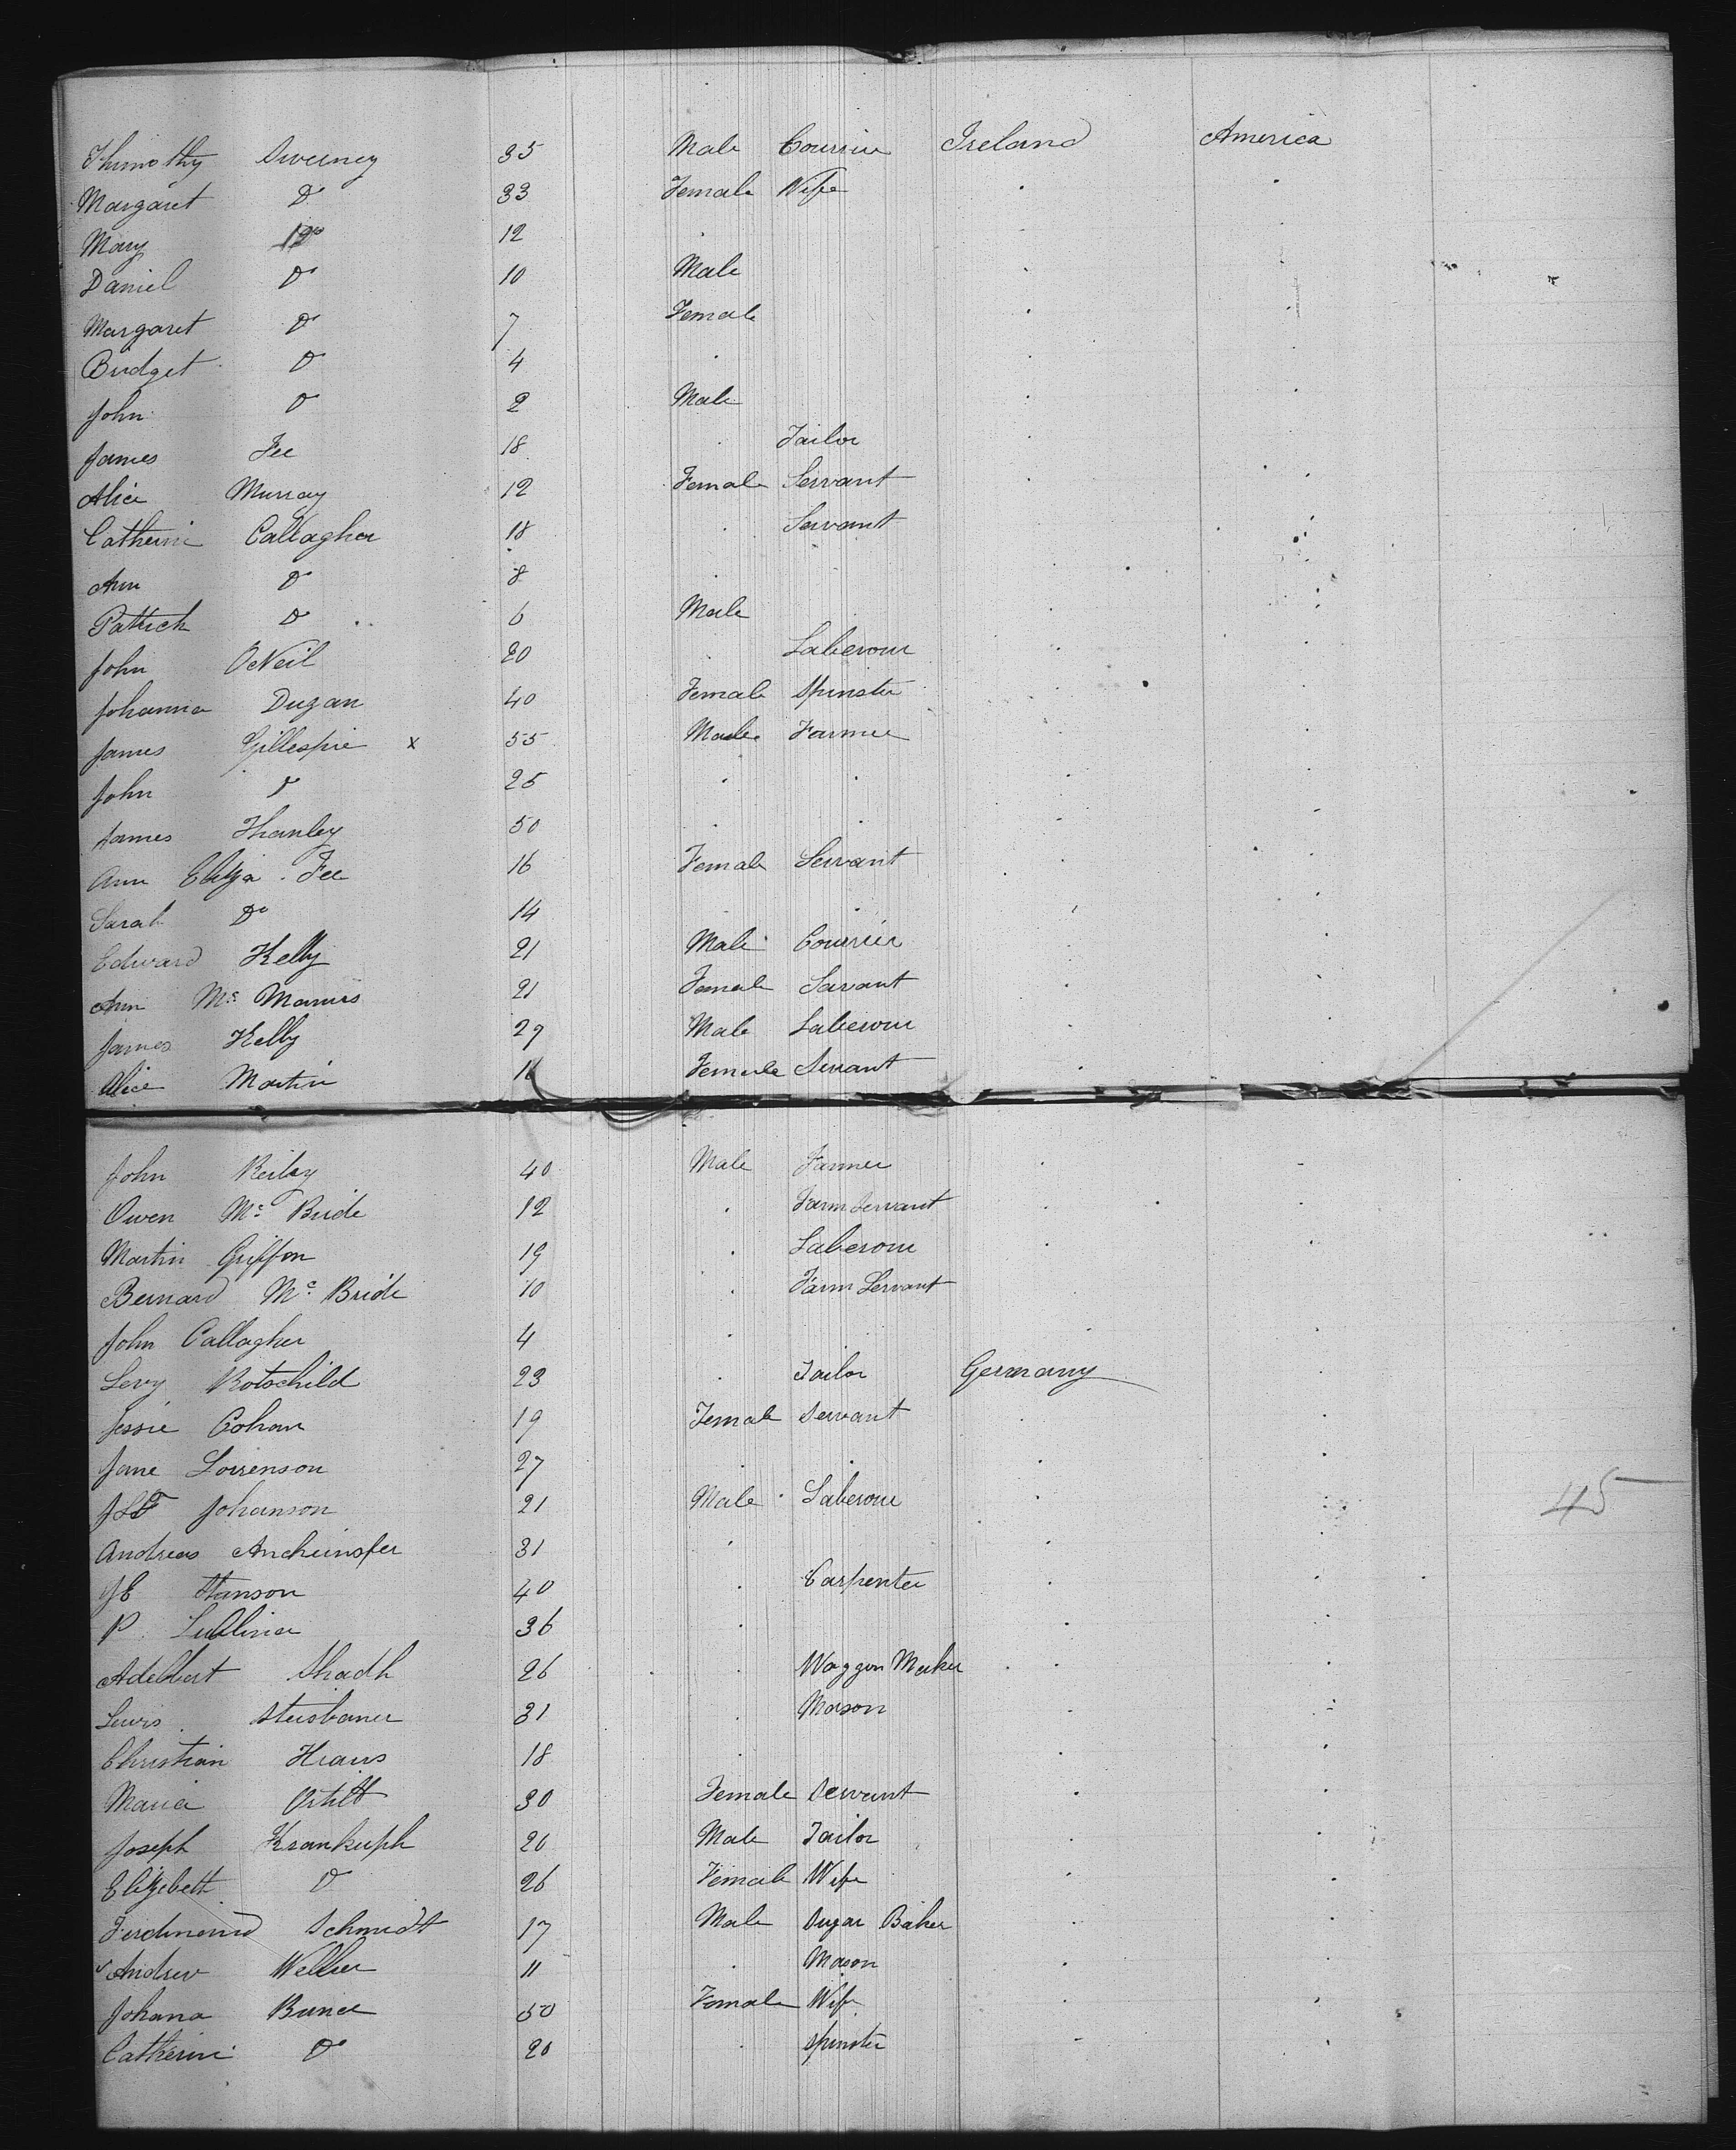 Thimothy Sweeney 35 Male Courrier Ireland America
Margaret Do 33 Female Wife
Mary Do 12
Daniel Do 10 Male
Margaret Do 7 Female
Bridget Do 4
John Do 2 Male
James Fee 18 Tailor
Alice Murray 12 Female Servant
Catherine Callagher 18 Servant
Ann Do 8
Patrick Do 6 Male
John ONeil 20 Laberour
Johanna Dugan 40 Female Spinster
James Gillespie x 55 Male Farmer
John Do 25
James Hanley 50
Ann Eliza Fee 16 Female Servant
Sarah Do 14
Edward Kelly 21 Male Courrier
Ann Mc Manus 21 Female Servant
James Kelly 29 Male Laberour
Alice Martin Female Servant
John Reiley 40 Male Farmer
Owen Mc Bride 12 Farm Servant
Martin Griffon 19 Laberour
Bernard Mc Bride 10 Farm Servant
John Callagher 4
Levy Rotschild 23 Tailor Germany
Jessie Cohan 19 Female Servant
Jane Lorrenson 27
Johanson 21 Male Laberour
Andreas 31
JE Hanson 40 Carpenter
P. 36
Adelbert Shadh 26 Waggon Maker
Lewis 31 Mason
Christian Kraus 18
Maria 30 Female Servant
Joseph Krankuph 26 Male Tailor
Elizebeth Do 26 Female Wife
Ferdinand Schmidt 17 Male Sugar Baker
Andrew Welker 11 Mason
Johana 50 Female Wife
Catherine Do 20 Spinster
45